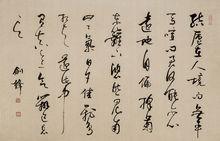 結廬在人境而無車
馬喧問君何能爾心
遠地自偏採菊
東籬下悠然見南
山々氣日夕佳飛鳥
相與還此中
有真意欲辨已忘
言